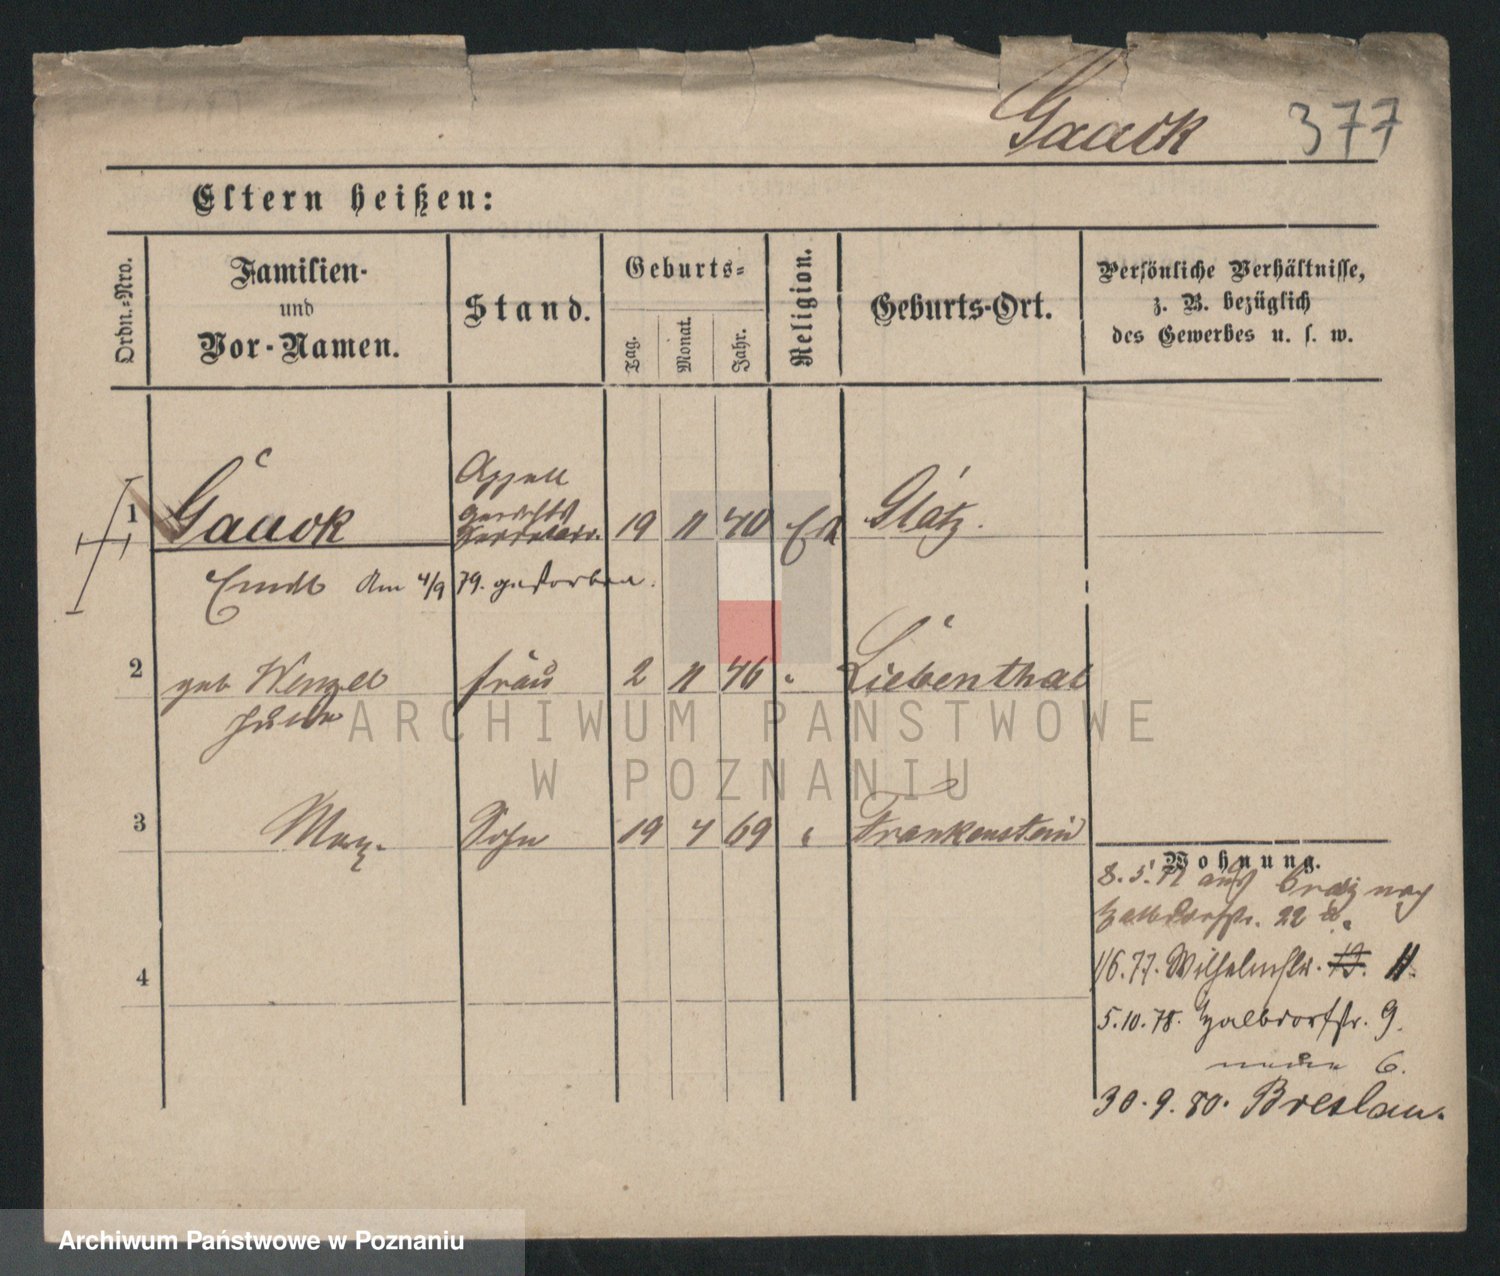 Gaack 377
Eltern heißen:
Ordn.-Nro.
Familien-
und
Vor-Namen.
Stand.
Geburts-
Tag.
Monat.
Jahr.
Religion.
Geburts-Ort.
Persönliche Verhältnisse,
z. B. bezüglich
des Gewerbes u. s. w.
Appell
Gerichts
1 Gaack 19 11 40 Glatz.
am 4/9 79. gestorben.
2 geb Wenzel Frau 2 11 46 " Liebenthal
ARCHIWUM PAŃSTWOWE
W POZNANIU
3 Max. Sohn 19 4 69 " Frankenstein
Wohnung.
Halbdorfstr. 22
1/6.77. Wilhelmstr. 11.
4
5.10.78. Halbdorfstr. 9.
neue 6.
30.9.80. Breslau.
Archiwum Państwowe w Poznaniu